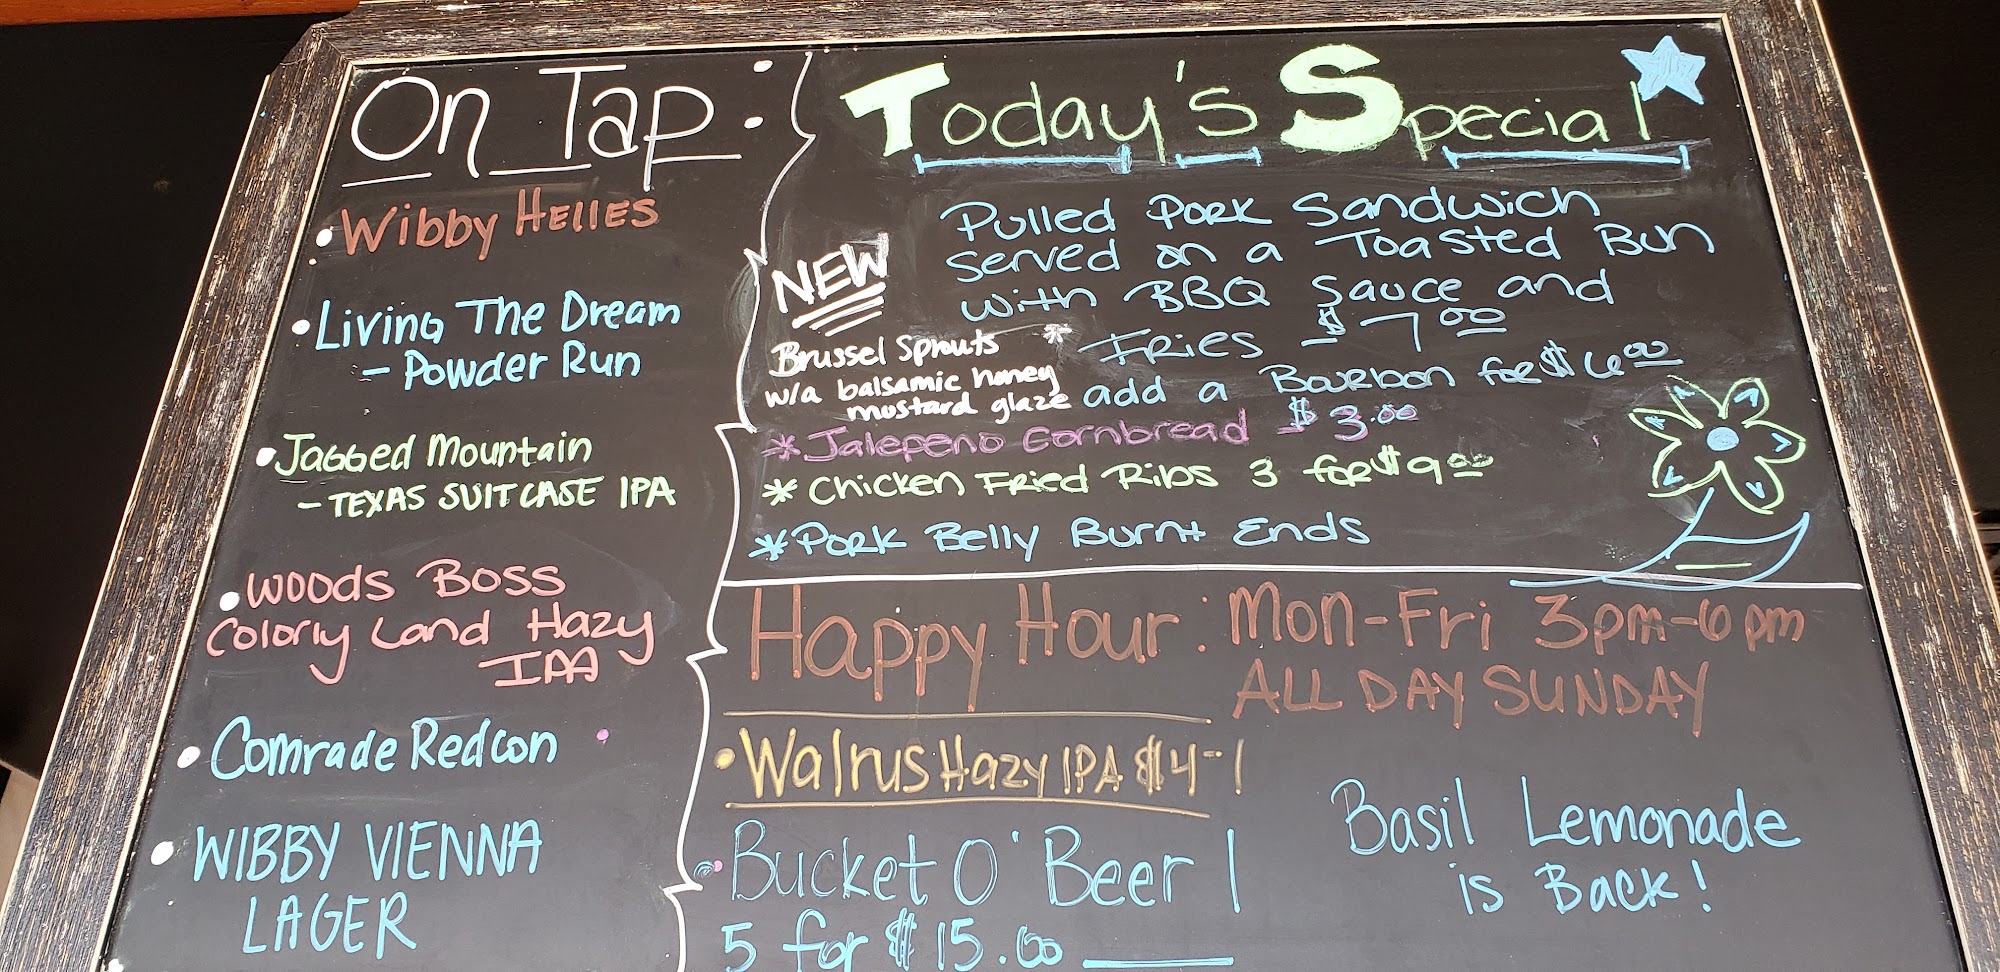 On Tap:
Wibby Helles
Living The Dream
- Powder Run
Jagged Mountain
- TEXAS SUITCASE IPA
Woods Boss
Colorly Land Hazy
IPA
Comrade Redcon
WIBBY VIENNA
LAGER
Today's Special
Pulled Pork Sandwich
served on a Toasted Bun
with BBQ Sauce and
Fries $7.00
add a Bourbon for $6.00
NEW
Brussel Sprouts *
w/a balsamic honey
mustard glaze
* Jalepeno Cornbread $3.00
* Chicken Fried Ribs 3 for $9.00
* Pork Belly Burnt Ends
Happy Hour: Mon-Fri 3pm-6pm
ALL DAY SUNDAY
Walrus Hazy IPA $4-
Bucket O' Beer
5 for $15.00
Basil Lemonade
is Back!